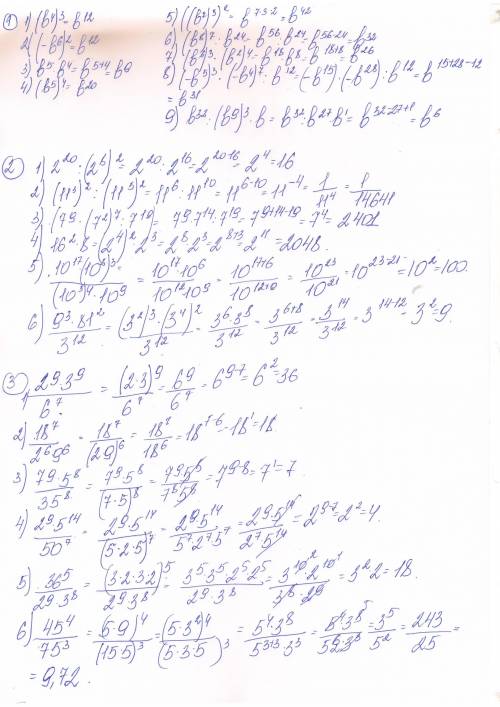 ① 1) (в⁴)³ = в¹²
2) (-в⁶)² = в¹²
3) в⁵·в⁴ = в⁵⁺⁴ = в⁹
4) (в⁵)⁴ = в²⁰
5) ((в²)³)⁷ = в⁷·³·² = в⁴²
6) (в⁸)⁷ : в²⁴ = в⁵⁶ : в²⁴ = в⁵⁶⁻²⁴ = в³²
8) (-в⁵)³ : (-в⁴)⁷ : в¹² = (-в¹⁵) · (-в²⁸) : в¹² = в¹⁵⁺²⁸⁻¹²
= в³¹
9) в³² : (в⁹)³ · в = в³² : в²⁷ · в¹ = в³²⁻²⁷⁺¹ = в⁶
② 1) 2²⁰ : (2⁸)² = 2²⁰ : 2¹⁶ = 2²⁰⁻¹⁶ = 2⁴ = 16
2) (11³)² : (11⁵)² = 11⁶ : 11¹⁰ = 11⁶⁻¹⁰ = 11⁻⁴ = 1/11⁴ = 1/14641
3) (7⁹ · (7²)⁷ : 7¹⁹) = 7⁹·7¹⁴ : 7¹⁹ = 7⁹⁺¹⁴⁻¹⁹ = 7⁴ = 2401
4) 16² · 8 = (2⁴)² · 2³ = 2⁸ · 2³ = 2⁸⁺³ = 2¹¹ = 2048.
5) 10¹⁷·(10²)³ / (10³)⁴·10⁹ = 10¹⁷·10⁶ / 10¹²·10⁹ = 10¹⁷⁺⁶ / 10¹²⁺⁹ = 10²³ / 10²¹ = 10²³⁻²¹ = 10² = 100.
6) 9³·81² / 3¹² = (3²)³·(3⁴)² / 3¹² = 3⁶·3⁸ / 3¹² = 3⁶⁺⁸ / 3¹² = 3¹⁴ / 3¹² = 3¹⁴⁻¹² = 3² = 9.
③ 1) 2⁹·3⁹ / 6⁷ = (2·3)⁹ / 6⁷ = 6⁹ / 6⁷ = 6⁹⁻⁷ = 6² = 36
2) 18⁷ / 2⁶·9⁶ = 18⁷ / (2·9)⁶ = 18⁷ / 18⁶ = 18⁷⁻⁶ = 18¹ = 18
3) 7⁹·5⁸ / 35⁸ = 7⁹·5⁸ / (7·5)⁸ = 7⁹·5⁸ / 7⁸·5⁸ = 7⁹⁻⁸ = 7¹ = 7.
4) 2⁹·5¹⁴ / 50⁷ = 2⁹·5¹⁴ / (5·2·5)⁷ = 2⁹·5¹⁴ / 5⁷·2⁷·5⁷ = 2⁹·5¹⁴ / 2⁷·5¹⁴ = 2⁹⁻⁷ = 2² = 4.
5) 36⁵ / 2⁹·3⁸ = (3·2·3·2)⁵ / 2⁹·3⁸ = 3⁵·3⁵·2⁵·2⁵ / 2⁹·3⁸ = 3¹⁰·2¹⁰ / 3⁸·2⁹ = 3²·2 = 18.
6) 45⁴ / 75³ = (5·9)⁴ / (15·5)³ = (5·3²)⁴ / (5·3·5)³ = 5⁴·3⁸ / 5³⁺³·3³ = 5⁴·3⁸ / 5⁶·3³ = 3⁵ / 5² = 243 / 25 =
= 9,72.